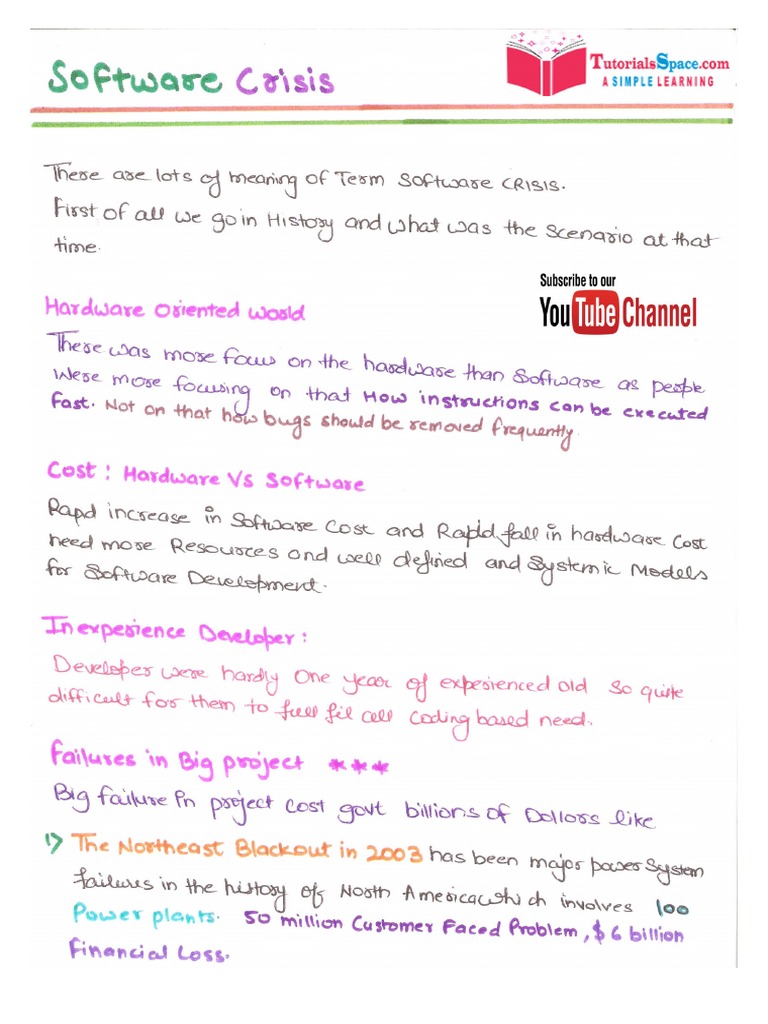 Software Crisis
TutorialsSpace.com
A SIMPLE LEARNING
There are lots of meaning of Term Software CRISIS.
First of all we go in History and what was the scenario at that
time.
Subscribe to our
YouTube Channel
Hardware Oriented World
There was more focus on the hardware than Software as people
Were more focusing on that How instructions can be executed
fast. Not on that how bugs should be removed frequently.
Cost: Hardware Vs Software
Rapd increase in Software Cost and Rapid fall in hardware Cost
need more Resources and well defined and Systemic Models
for Software Development.
Inexperience Developer:
Developer were hardly One year of experienced old so quite
difficult for them to full fil all Coding based need.
Failures in Big project ***
Big failure in project cost govt billions of Dollors like
1) The Northeast Blackout in 2003 has been major power System
failures in the history of North America which involves 100
Power plants. 50 million Customer Faced Problem, $ 6 billion
Financial Loss.